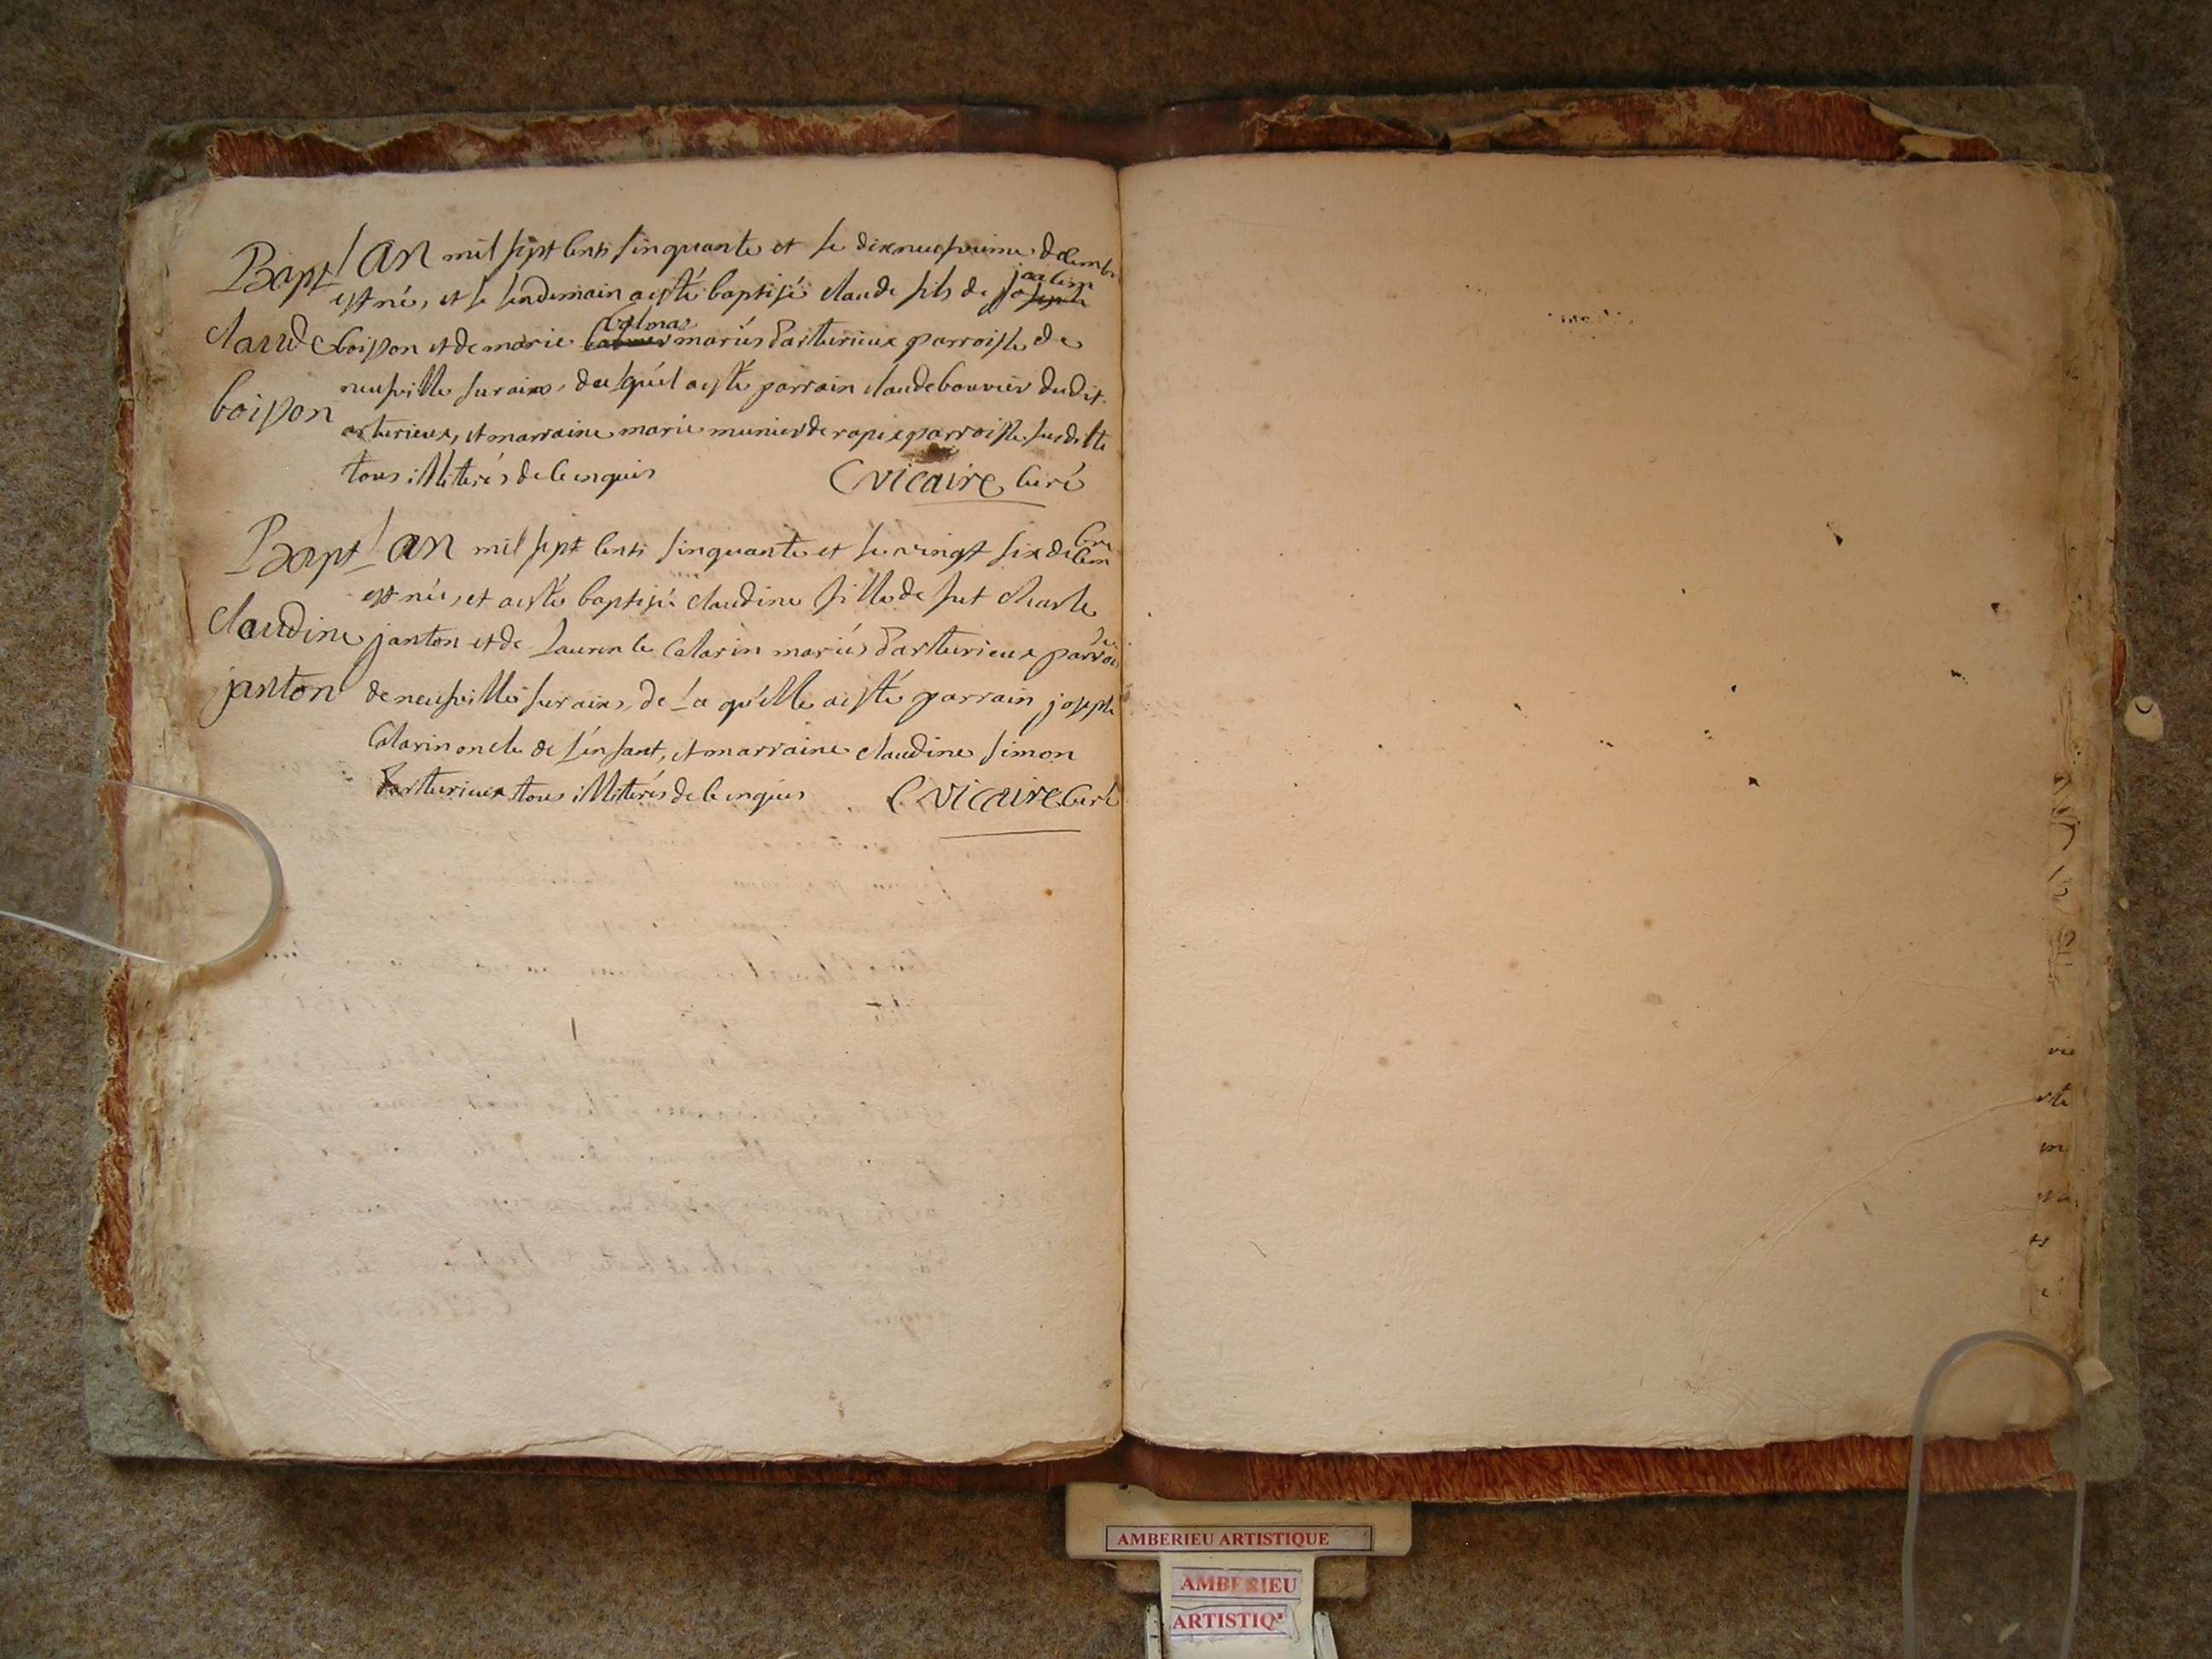 Bapt l'an mil sept cents cinquante et le dixneufvieme decembre
est né, et le lendemain a esté baptisé claude fils de joseph joachim
claude boisson et de marie Calmas mariés d'arturieux parroisse de
boisson neufville sur ains, duquel a esté parrain claude bouvier dudit
arturieux, et marraine marie munier de rapix parroisse susditte
tous illiterés de ce enquis C vicaire Curé
Bapt l'an mil sept cents cinquante et le vingt six decembre
est née, et a esté baptisée claudine fille de fut charle
claudine janton et de Laurence Calarin mariés d'arturieux parrois
janton de neufville sur ains, de La quelle a esté parrain joseph
Calarin oncle de l'enfant, et marraine claudine simon
d'arturieux tous illiterés de ce enquis C vicaire Curé
AMBERIEU ARTISTIQUE
AMBERIEU
ARTISTIQ